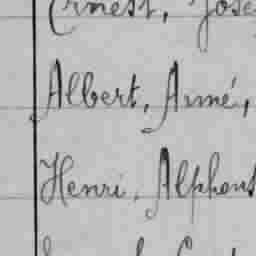 Ernest, José
Albert, Aimé,
Henri, Alphons